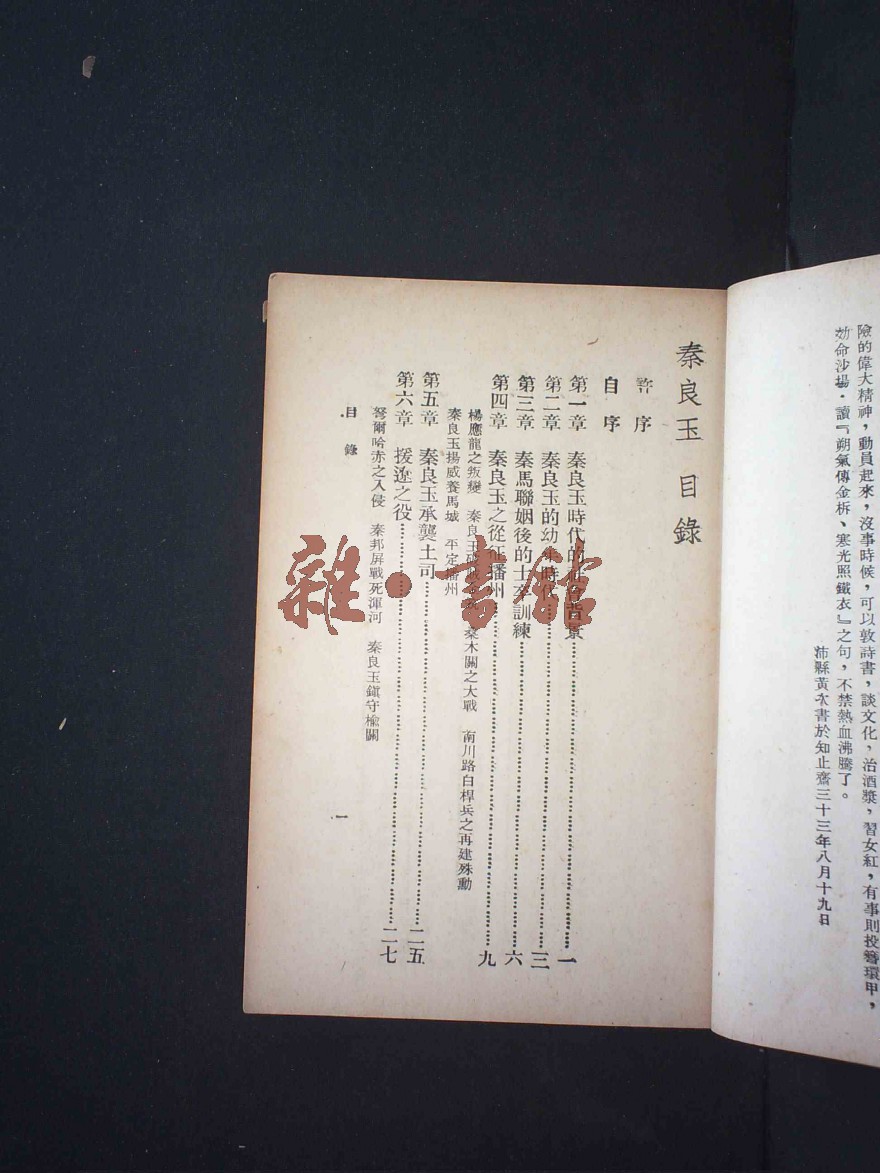 險的偉大精神，動員起來，沒事時候，可以敦詩書，談文化，治酒漿，習女紅，有事則投簪環甲，
効命沙場．讀『朔氣傳金柝、寒光照鐵衣』之句，不禁熱血沸騰了。
沛縣黃次書於知止齋三十三年八月十九日
秦良玉 目錄
序
自序
第一章 秦良玉時代的社會背景 一
第二章 秦良玉的幼年時代 三
第三章 秦馬聯姻後的士卒訓練 六
第四章 秦良玉之從征播州 九
楊應龍之叛變 秦良玉 桑木關之大戰 南川路白桿兵之再建殊勳
秦良玉揚威養馬城 平定播州
第五章 秦良玉承襲土司 二五
第六章 援遼之役 二七
弩爾哈赤之入侵 秦邦屏戰死渾河 秦良玉鎭守榆關
目錄
一
雜·書館